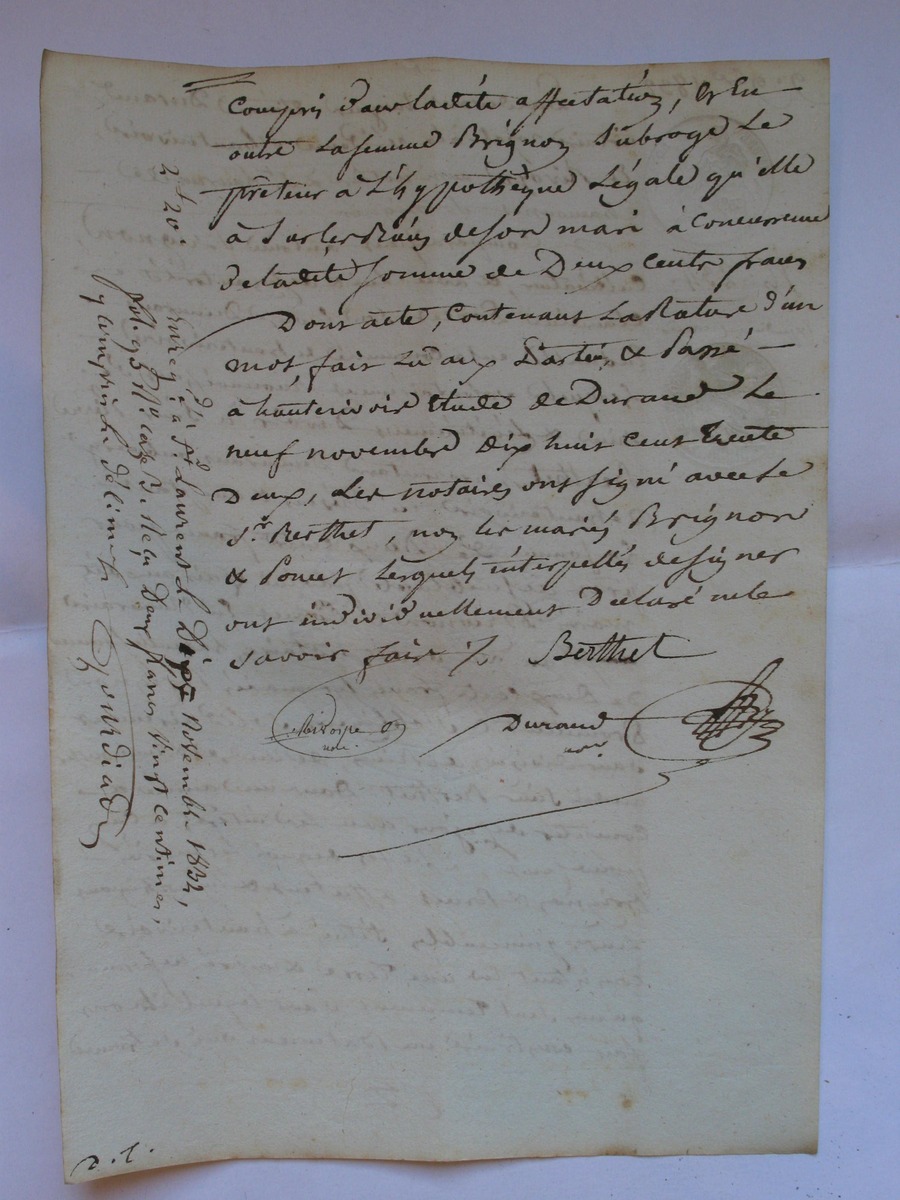 compris dans ladite affectation, Et En
outre La femme Brignon Subroge Le
prêteur à L'hypothèque Légale qu'elle
à Sur les Biens de son mari à Concurrence
de ladite somme de Deux cents francs
Dont acte, Contenant La Rature d'un
mot, fait Lu aux Parties & Passé
à hauterivoire Etude de Durand Le
neuf novembre dix huit cent trente
Deux, Les notaires ont signé avec Le
Sr. Berthet, non les mariés Brignon
& Poncet Lesquels interpellés de signer
ont individuellement Déclaré ne le
savoir faire %. Berthet
not.
Durand
not.
2f 20c
Enregé. à St. Laurent Le Dix Novembre 1832,
fol. 93 Vo. case 3. Reçu Deux francs vingt centimes,
y compris le décime
D. L.